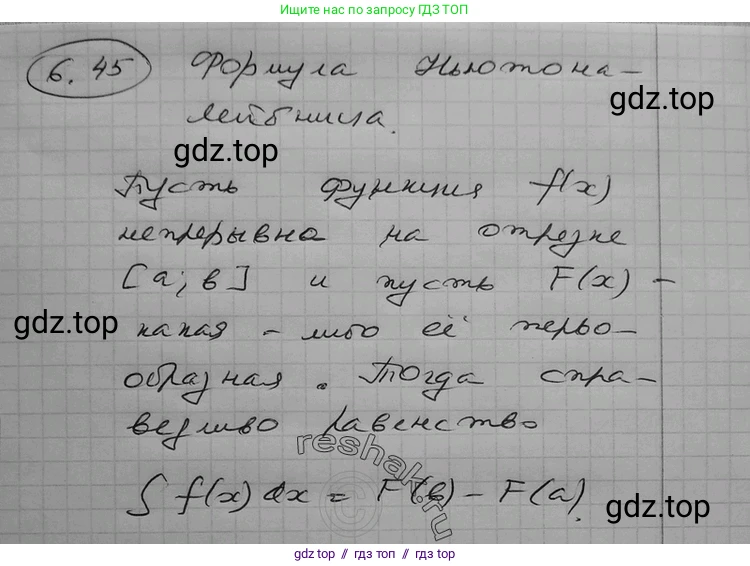 Ищите нас по запросу ГДЗ ТОП
6.45 Формула Ньютона-
Лейбница.
gdz.top
gdz.top
Пусть функция f(x)
непрерывна на отрезке
[a; в] и пусть F(x) -
gdz.top
какая-либо её перво-
образная. Тогда спра-
ведливо равенство
reshak.ru
∫ f(x) dx = F(в) - F(a).
gdz.top
gdz.top // gdz.top // gdz.top